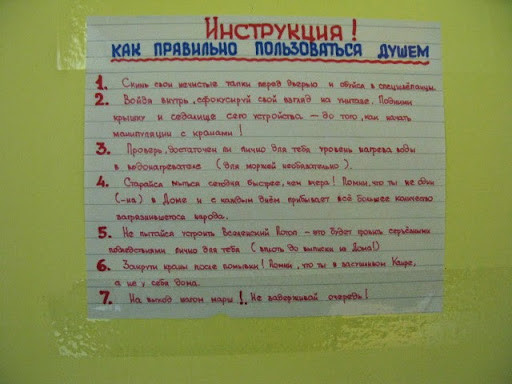 Инструкция!
КАК ПРАВИЛЬНО ПОЛЬЗОВАТЬСЯ ДУШЕМ
1. Скинь свои нечистые тапки перед дверью и обуйся в спецшлёпанцы.
2. Войдя внутрь, сфокусируй свой взгляд на унитазе. Подними
крышку и седалище сего устройства – до того, как начать
манипуляции с кранами!
3. Проверь, достаточен ли лично для тебя уровень нагрева воды
в водонагревателе (для моржей необязательно).
4. Старайся мыться сегодня быстрее, чем вчера! Помни, что ты не один
(-на) в Доме и с каждым днём прибывает всё большее количество
загрязнившегося народа.
5. Не пытайся устроить Вселенский Потоп – это будет грозить серьёзными
последствиями лично для тебя (вплоть до выписки из Дома!)
6. Закрути краны после помывки! Помни, что ты в застывшем Каире,
а не у себя дома.
7. На выход шагом марш! Не задерживай очередь!